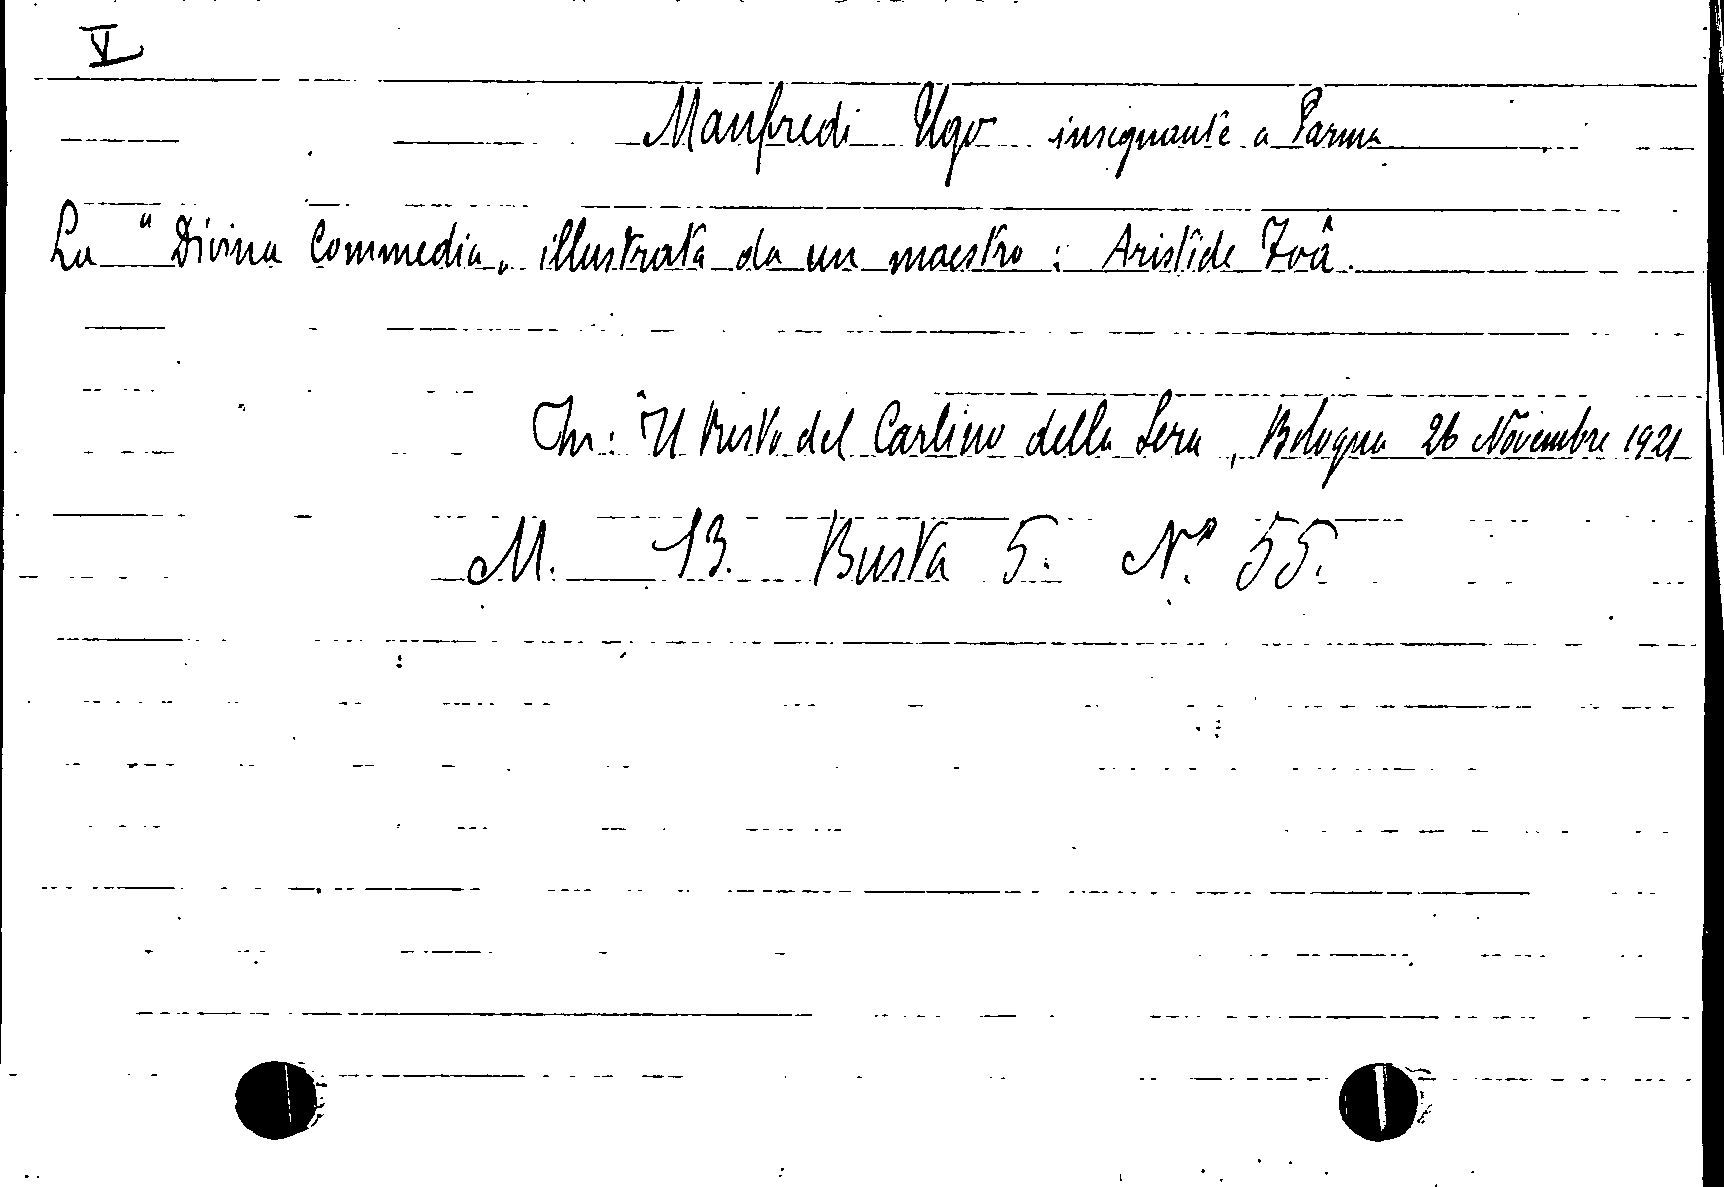 V
Manfredi Ugo insegnante a Parma
La "Divina Commedia„ illustrata da un maestro: Aristide Zoâ.
In: Il Resto del Carlino della Sera, Bologna 26 Novembre 1921
M. 13. Busta 5. N.º 55.